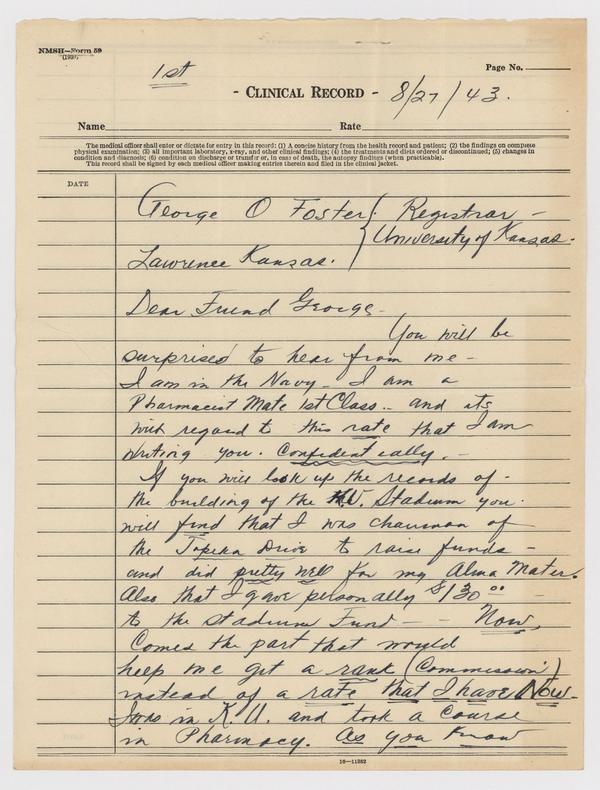 NMSH—Form 59
(1937)
1st
Page No.
- CLINICAL RECORD - 8/27/43.
Name Rate
The medical officer shall enter or dictate for entry in this record: (1) A concise history from the health record and patient; (2) the findings on complete
physical examination; (3) all important laboratory, x-ray, and other clinical findings; (4) the treatments and diets ordered or discontinued; (5) changes in
condition and diagnosis; (6) condition on discharge or transfer or, in case of death, the autopsy findings (when practicable).
This record shall be signed by each medical officer making entries therein and filed in the clinical jacket.
DATE
George O Foster Registrar -
University of Kansas -
Lawrence Kansas.
Dear Friend George -
You will be
surprised to hear from me -
I am in the Navy - I am a
Pharmacist Mate 1st Class .. and its
with regard to this rate that I am
writing you. Confidentially. -
If you will look up the records of -
the building of the K.U. Stadium you
will find that I was chairman of
the Topeka Drive to raise funds -
and did pretty well for my Alma Mater.
Also that I gave personally $130.00 -
to the Stadium Fund - - Now,
Comes the part that would
help me get a rank (Commission)
instead of a rate that I have Now -
I was in K.U. and took a course
in Pharmacy. As you know
16-11262